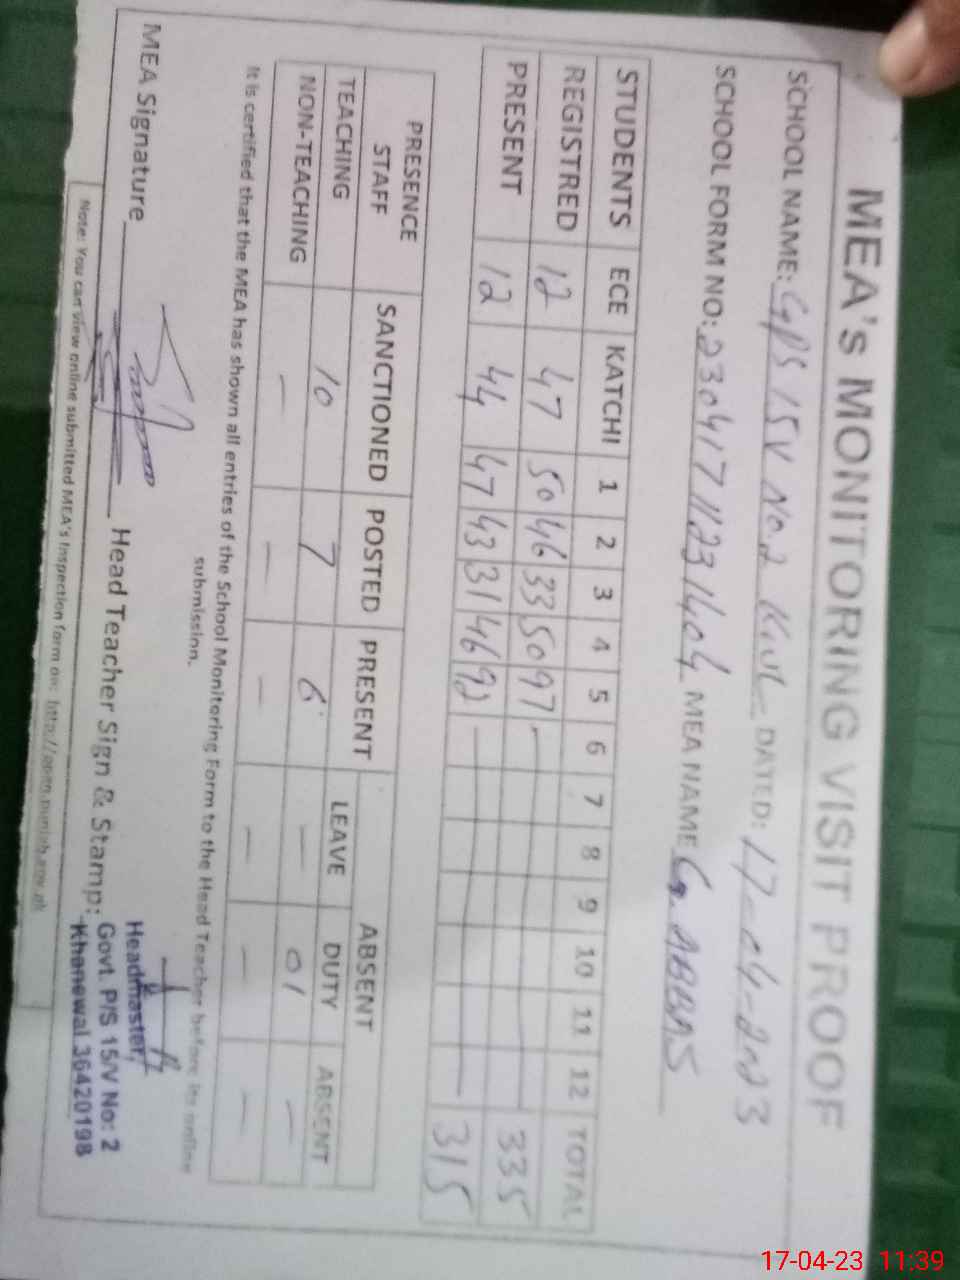 MEA's MONITORING VISIT PROOF
SCHOOL NAME: GPS 15V No.2 Kwl DATED: 17-04-2023
SCHOOL FORM NO: 23041711231404 MEA NAME G. ABBAS
STUDENTS ECE KATCHI 1 2 3 4 5 6 7 8 9 10 11 12 TOTAL
REGISTRED 12 47 50 46 33 50 97 - 335
PRESENT 12 44 47 43 31 46 92 315
PRESENCE STAFF SANCTIONED POSTED PRESENT ABSENT
LEAVE DUTY ABSENT
TEACHING 10 7 6 - 01 -
NON-TEACHING - - - - - -
It is certified that the MEA has shown all entries of the School Monitoring Form to the Head Teacher before its online
submission.
MEA Signature Head Teacher Sign & Stamp:
Headmaster,
Govt. P/S 15/V No: 2
Khanewal 36420198
Note: You can view online submitted MEA's Inspection form on: http://open.punjab.gov.pk
17-04-23 11:39